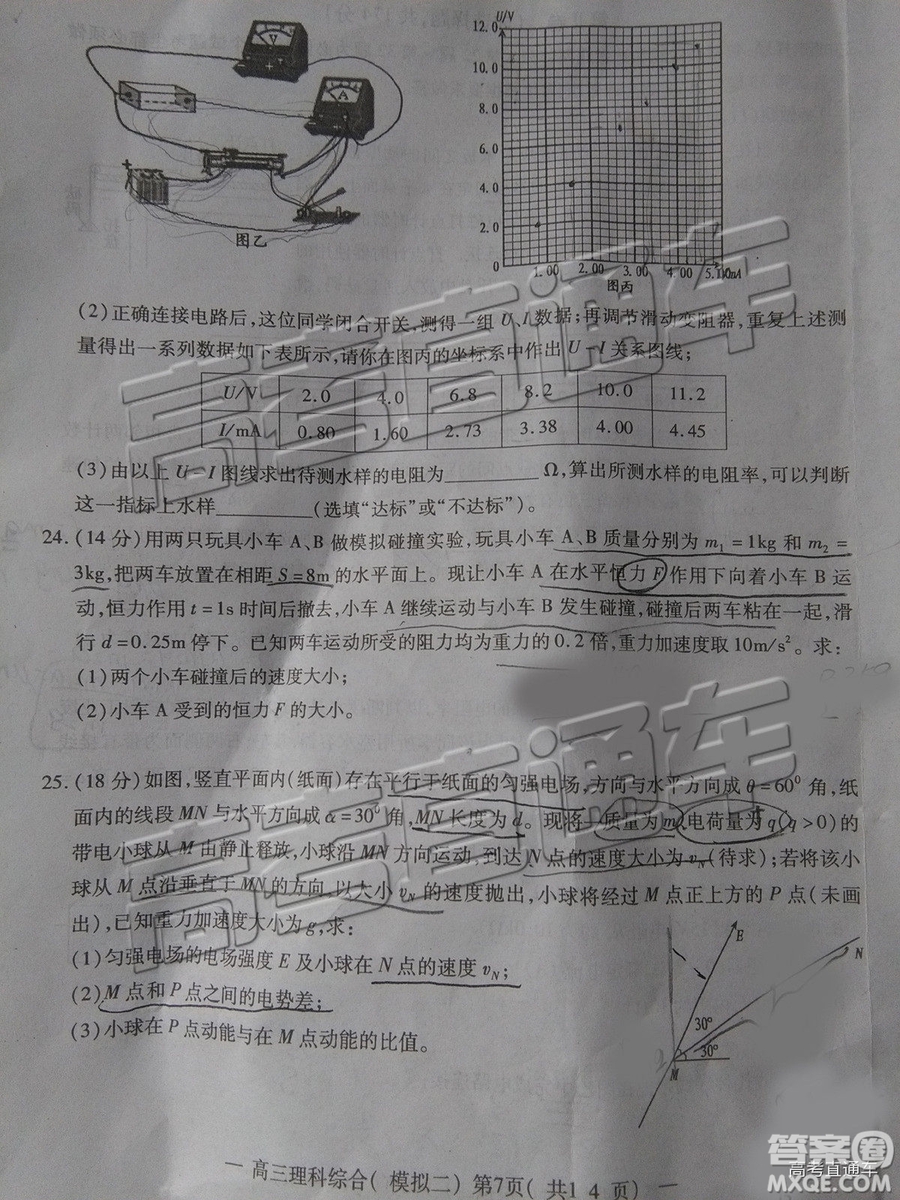 U/V
12.0
10.0
8.0
6.0
4.0
2.0
0
1.00 2.00 3.00 4.00 5.00
I/mA
V
A
图乙
图丙
(2)正确连接电路后,这位同学闭合开关,测得一组 U、I 数据;再调节滑动变阻器,重复上述测
量得出一系列数据如下表所示,请你在图丙的坐标系中作出 U-I 关系图线;
U/V 2.0 4.0 6.8 8.2 10.0 11.2
I/mA 0.80 1.60 2.73 3.38 4.00 4.45
(3)由以上 U-I 图线求出待测水样的电阻为________Ω,算出所测水样的电阻率,可以判断
这一指标上水样________(选填“达标”或“不达标”)。
24.(14 分)用两只玩具小车 A、B 做模拟碰撞实验,玩具小车 A、B 质量分别为 m₁=1kg 和 m₂=
3kg,把两车放置在相距 S=8m 的水平面上。现让小车 A 在水平恒力 F 作用下向着小车 B 运
动,恒力作用 t=1s 时间后撤去,小车 A 继续运动与小车 B 发生碰撞,碰撞后两车粘在一起,滑
行 d=0.25m 停下。已知两车运动所受的阻力均为重力的 0.2 倍,重力加速度取 10m/s²。求:
(1)两个小车碰撞后的速度大小;
(2)小车 A 受到的恒力 F 的大小。
25.(18 分)如图,竖直平面内(纸面)存在平行于纸面的匀强电场,方向与水平方向成 θ=60° 角,纸
面内的线段 MN 与水平方向成 α=30° 角,MN 长度为 d。现将一质量为 m、电荷量为 q(q>0)的
带电小球从 M 由静止释放,小球沿 MN 方向运动,到达 N 点的速度大小为 vN(待求);若将该小
球从 M 点沿垂直于 MN 的方向,以大小 vN 的速度抛出,小球将经过 M 点正上方的 P 点(未画
出),已知重力加速度大小为 g,求:
(1)匀强电场的电场强度 E 及小球在 N 点的速度 vN;
(2)M 点和 P 点之间的电势差;
(3)小球在 P 点动能与在 M 点动能的比值。
E
N
30°
30°
M
— 高三理科综合( 模拟二) 第7页( 共1 4 页) —
高考直通车
高考直通车
答案圈
高考直通车
MXQE.COM